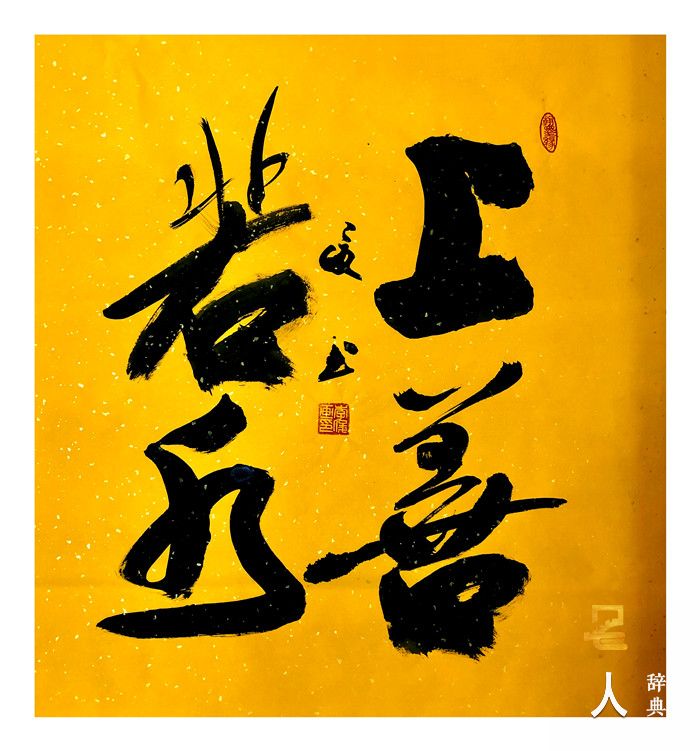 上善
若水
人
辞典